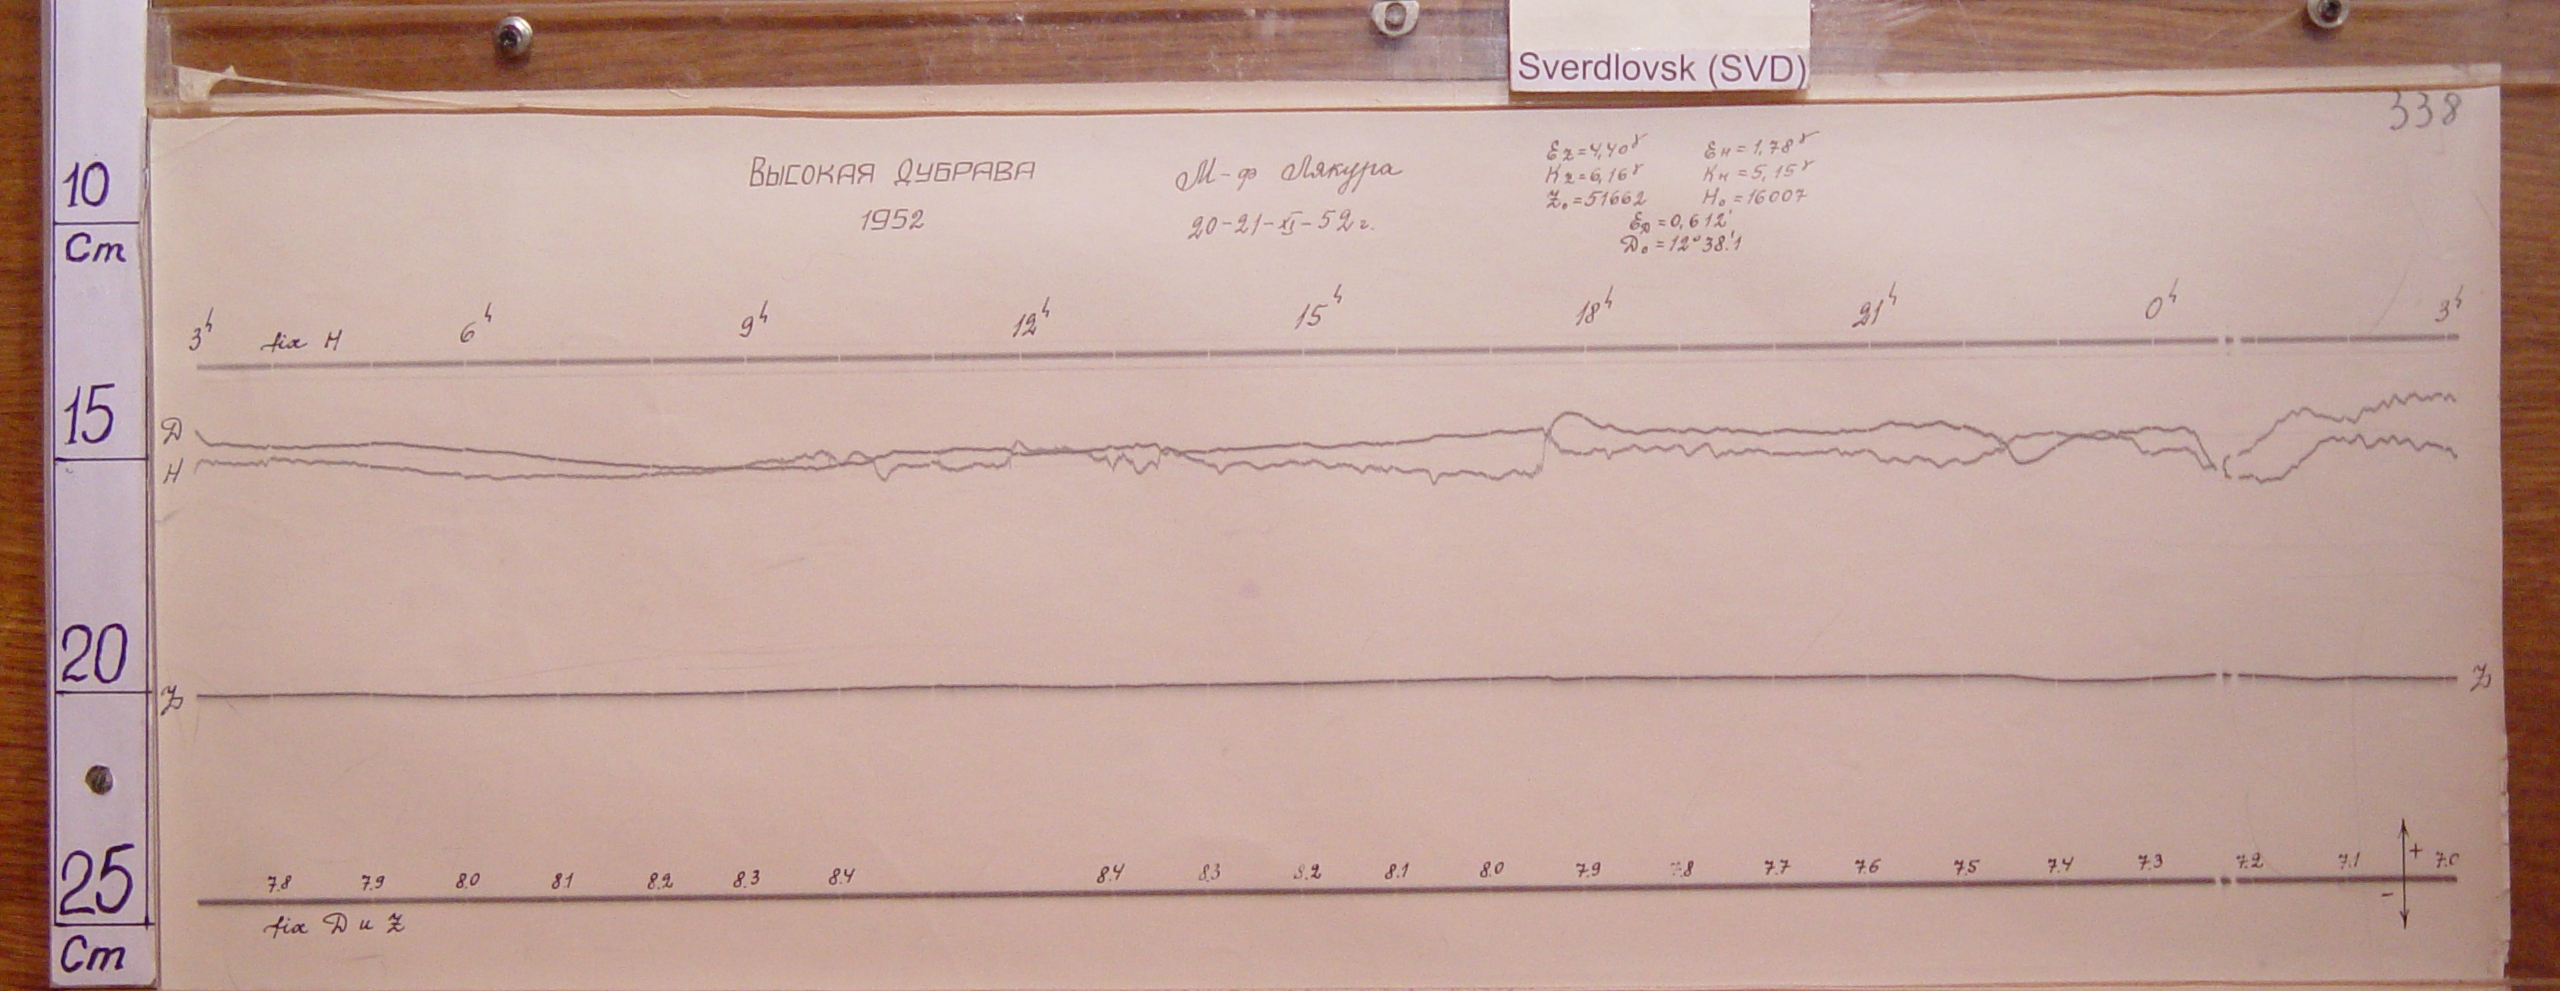 Sverdlovsk (SVD)
338
ВЫСОКАЯ ДУБРАВА
1952
М-ф Лякура
20-21-XI-52 г.
Ez=4,40γ Eн=1,78γ
Kz=6,16γ Kн=5,15γ
Z₀=51662 H₀=16007
E𝒟=0,612'
D₀=12°38.'1
10
Cm
15
20
25
Cm
3h 6h 9h 12h 15h 18h 21h 0h 3h
fix H
D
H
Z Z
7.8 7.9 8.0 8.1 8.2 8.3 8.4 8.4 8.3 8.2 8.1 8.0 7.9 7.8 7.7 7.6 7.5 7.4 7.3 7.2 7.1 7.0
+
-
fix D и Z